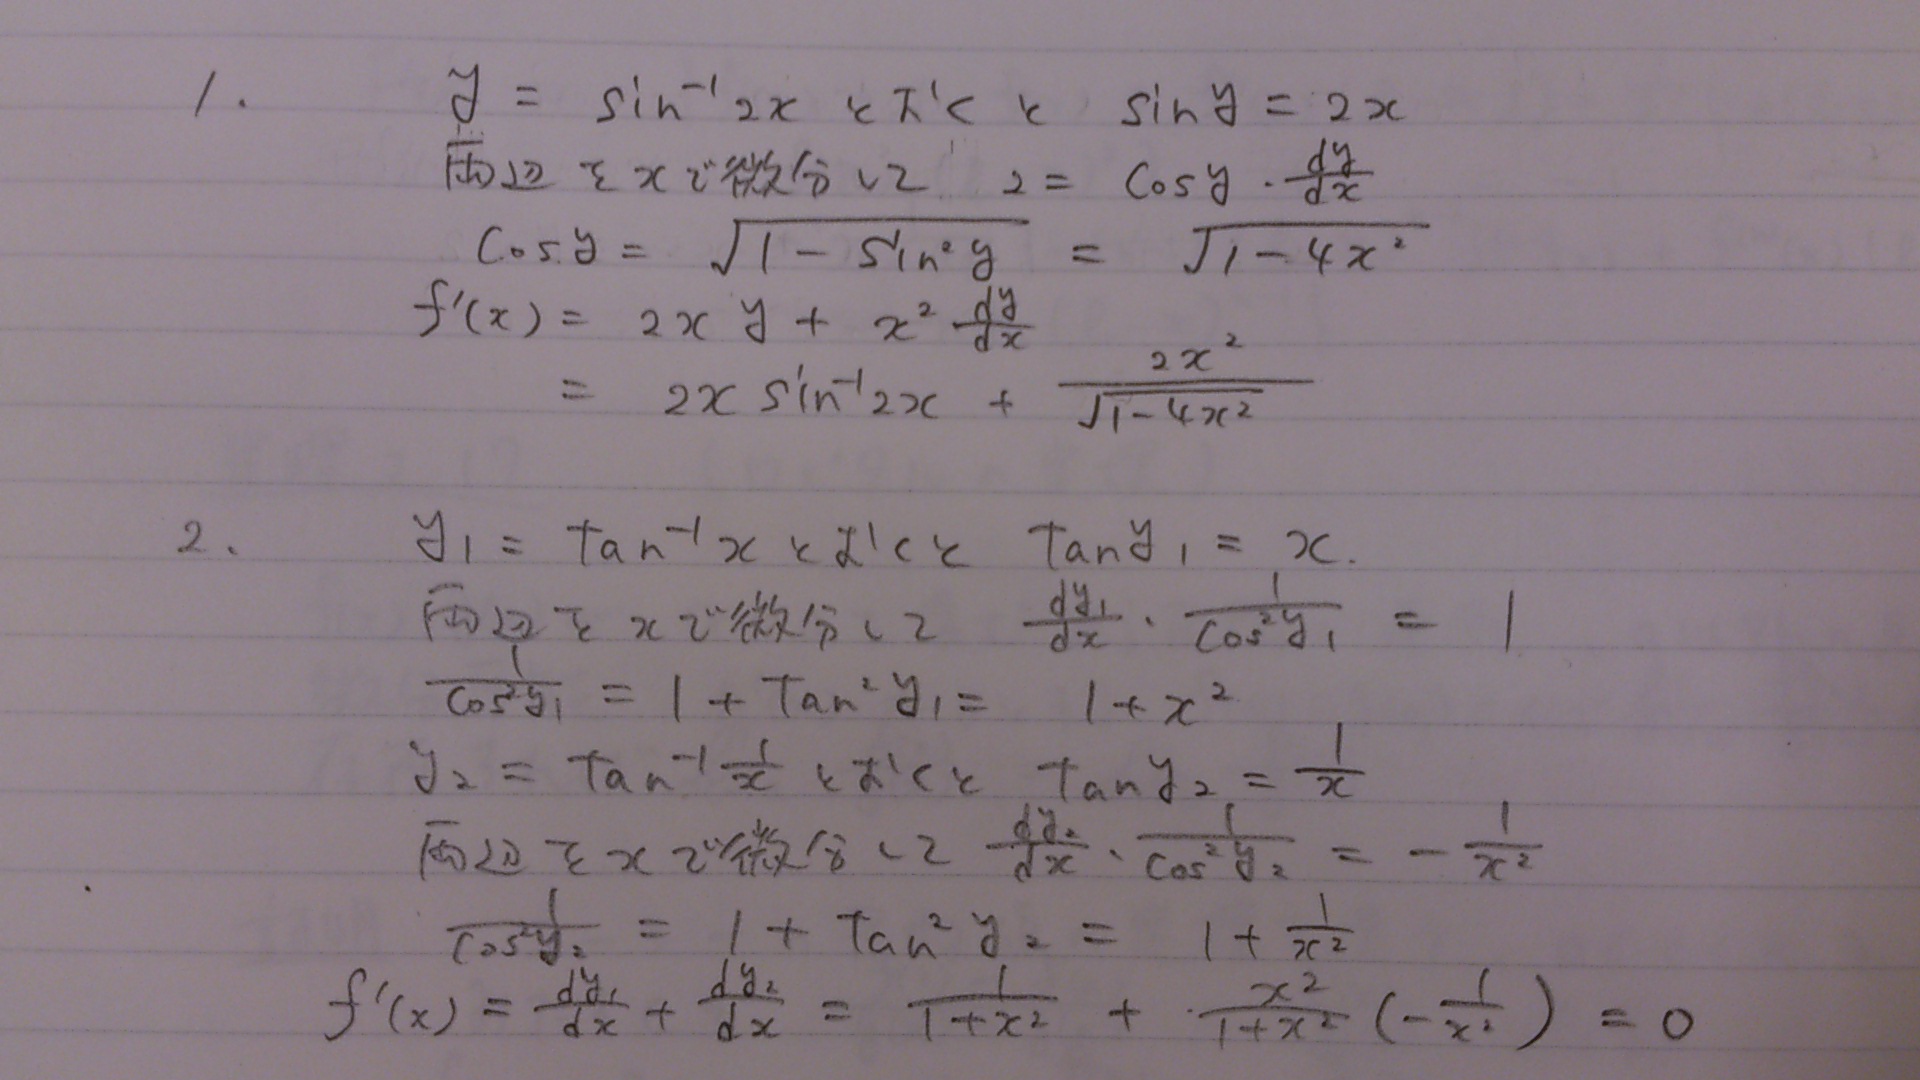 1. y = sin⁻¹2x とおくと sin y = 2x
両辺をxで微分して 2 = cos y · dy/dx
cos y = √(1 - sin²y) = √(1 - 4x²)
f'(x) = 2x y + x² dy/dx
= 2x sin⁻¹2x + 2x²/√(1-4x²)
2. y₁ = tan⁻¹x とおくと tan y₁ = x.
両辺をxで微分して dy₁/dx · 1/cos²y₁ = 1
1/cos²y₁ = 1 + tan²y₁ = 1 + x²
y₂ = tan⁻¹ 1/x とおくと tan y₂ = 1/x
両辺をxで微分して dy₂/dx · 1/cos²y₂ = - 1/x²
1/cos²y₂ = 1 + tan²y₂ = 1 + 1/x²
f'(x) = dy₁/dx + dy₂/dx = 1/(1+x²) + x²/(1+x²) (-1/x²) = 0